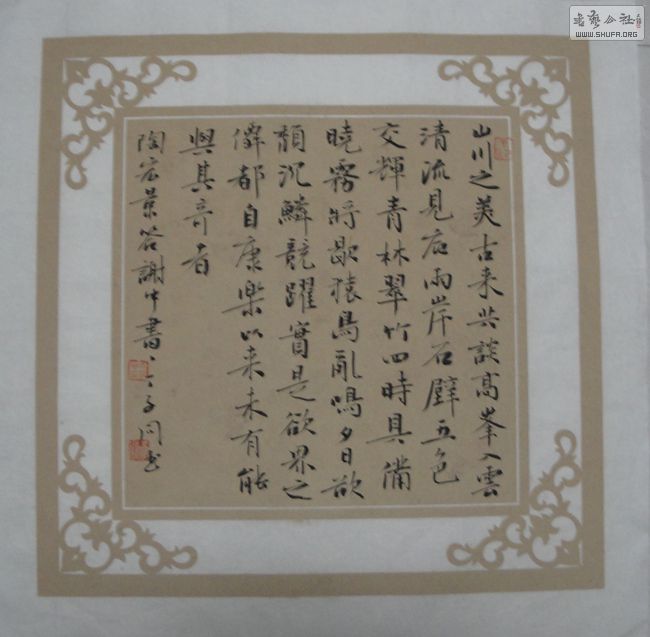 山川之美古来共談高峯入雲
清流見底兩岸石壁五色
交輝青林翠竹四時具備
曉霧將歇猿鳥亂鳴夕日欲
頹沉鱗競躍實是欲界之
僊都自康樂以来未有能
與其奇者
陶宏景答謝中書
书艺公社
WWW.SHUFA.ORG